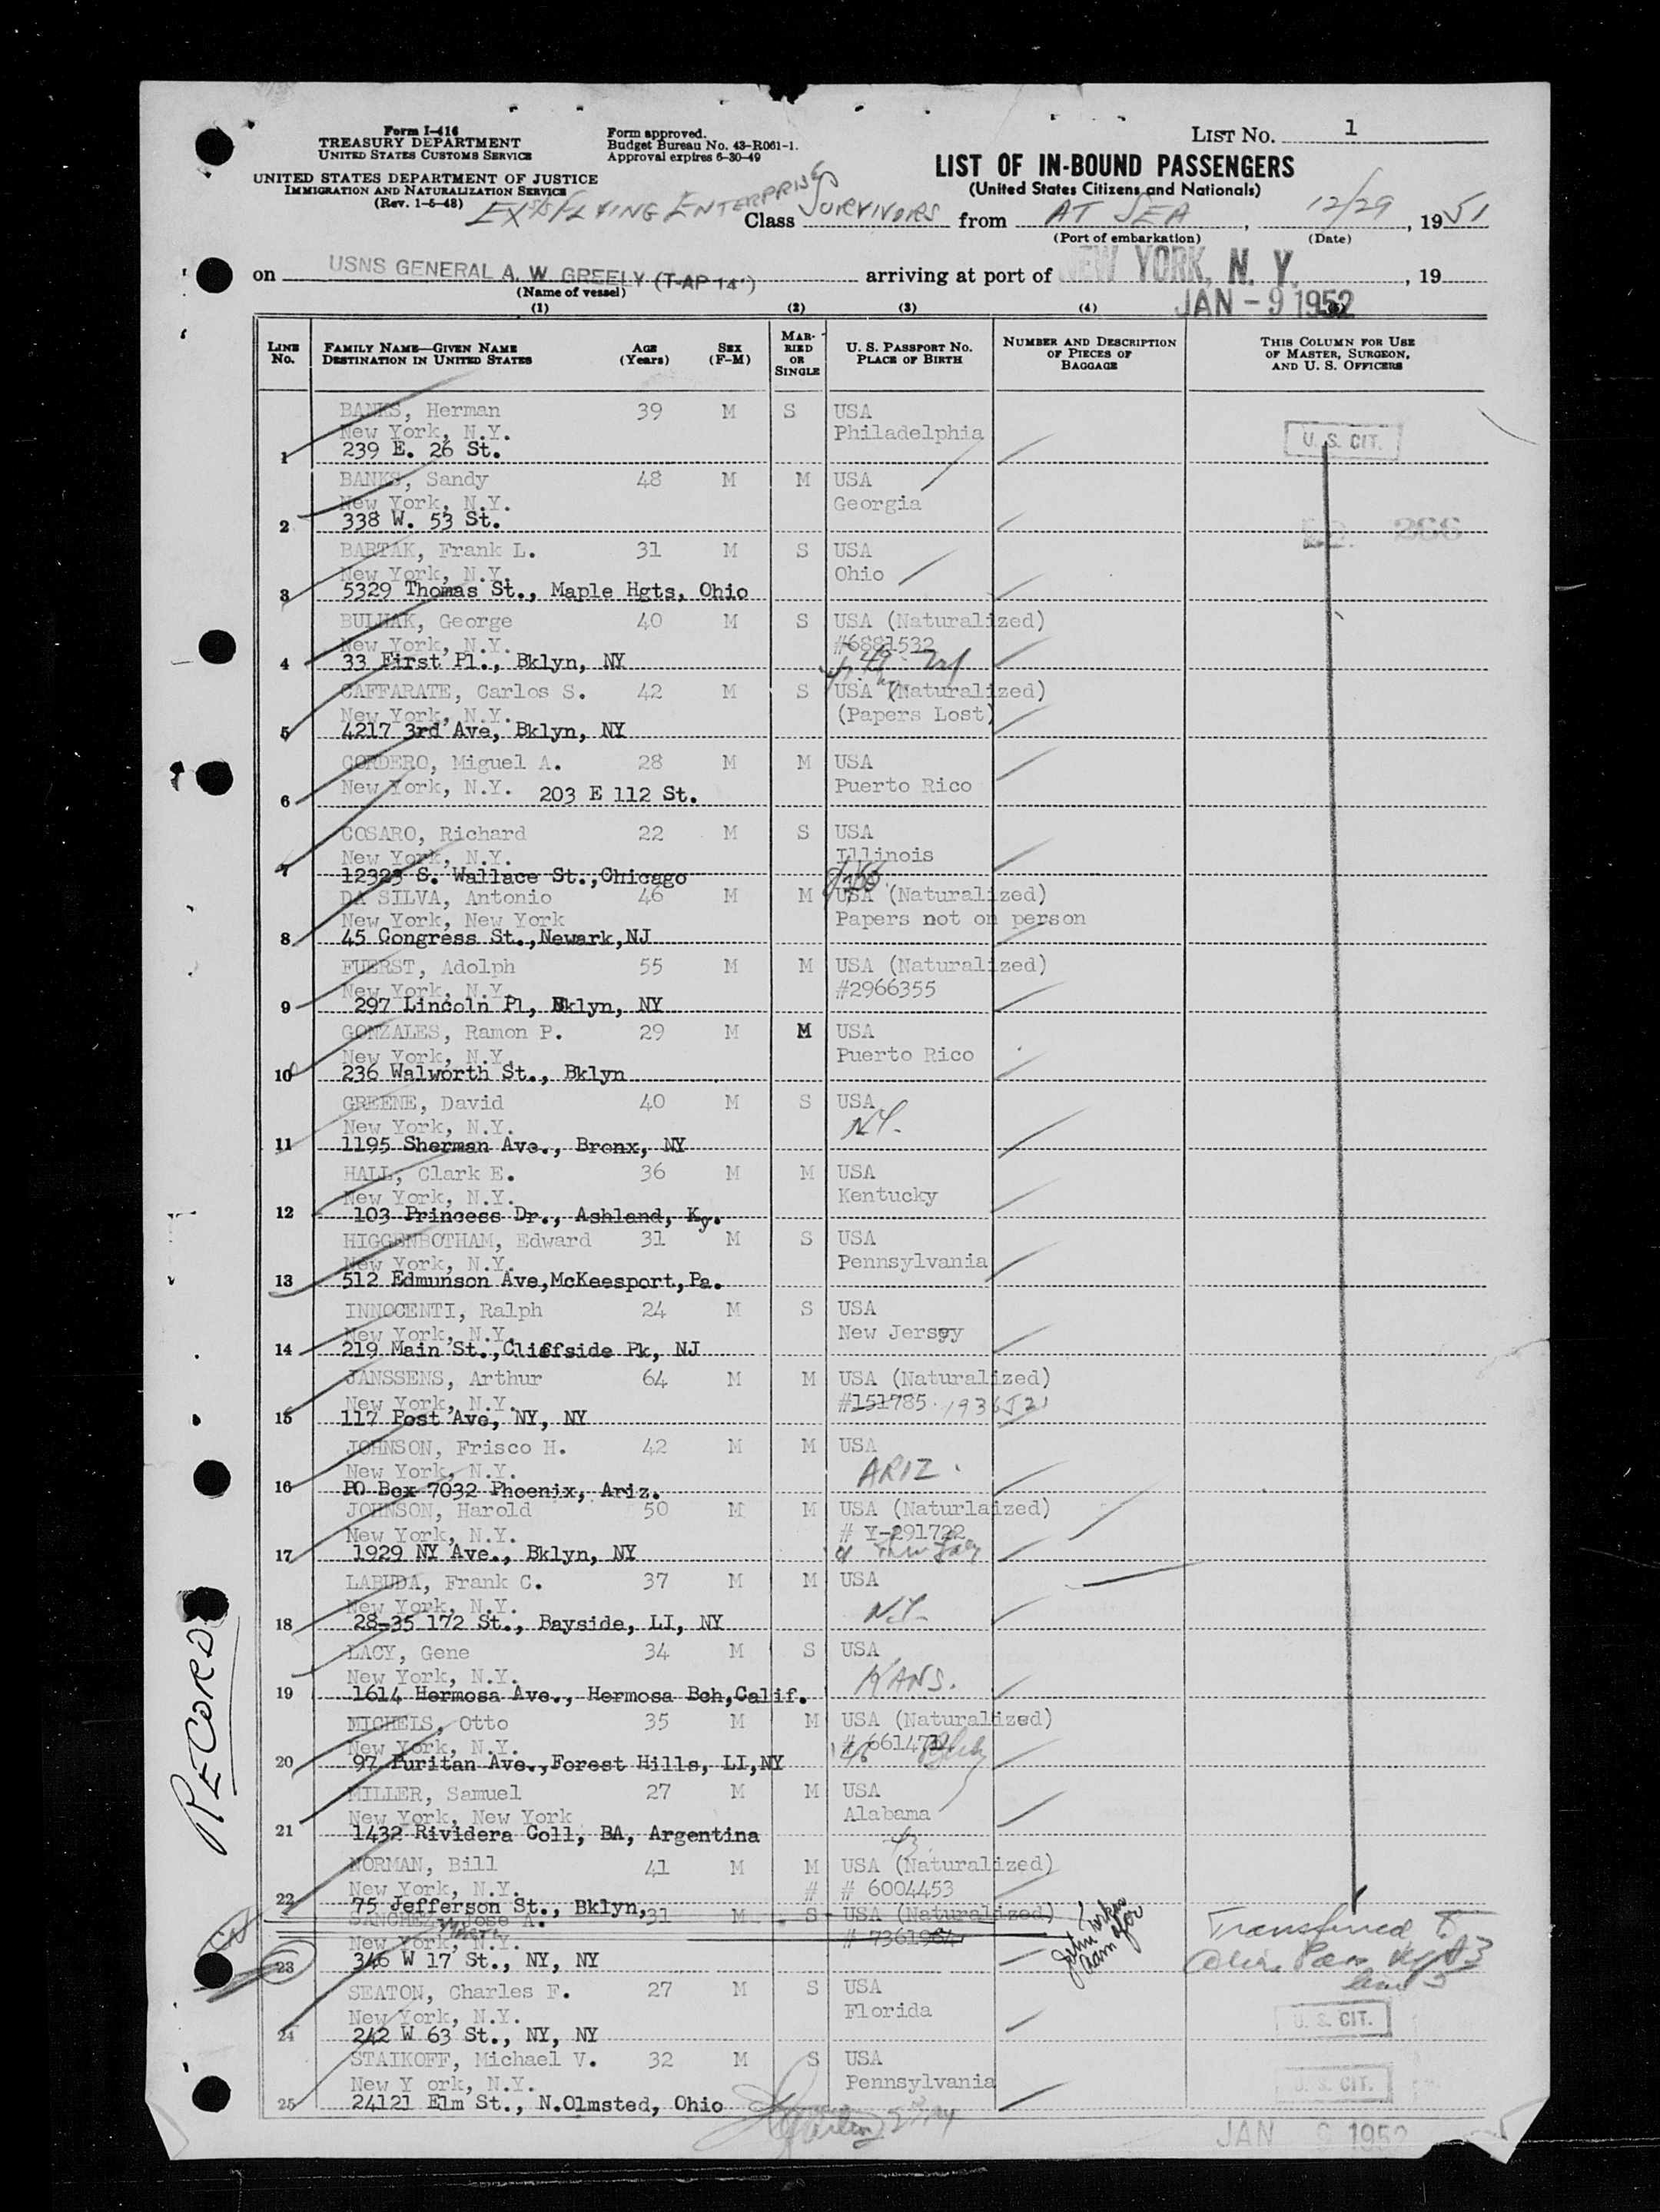 Form I-416
TREASURY DEPARTMENT
UNITED STATES CUSTOMS SERVICE
UNITED STATES DEPARTMENT OF JUSTICE
IMMIGRATION AND NATURALIZATION SERVICE
(Rev. 1-5-48)
Form approved.
Budget Bureau No. 43-R061-1.
Approval expires 6-30-49
LIST NO. 1
LIST OF IN-BOUND PASSENGERS
(United States Citizens and Nationals)
EX SS FLYING ENTERPRISE
Class SURVIVORS from AT SEA, 12/29, 1951
(Port of embarkation) (Date)
on USNS GENERAL A. W. GREELY (T-AP 14) arriving at port of NEW YORK, N. Y., 19
(Name of vessel)
JAN - 9 1952
(1) (2) (3) (4)
LINE NO. FAMILY NAME—GIVEN NAME DESTINATION IN UNITED STATES AGE (Years) SEX (F-M) MARRIED OR SINGLE U. S. PASSPORT NO. PLACE OF BIRTH NUMBER AND DESCRIPTION OF PIECES OF BAGGAGE THIS COLUMN FOR USE OF MASTER, SURGEON, AND U. S. OFFICERS
BANKS, Herman 39 M S USA
New York, N.Y. Philadelphia U. S. CIT.
1 239 E. 26 St.
BANKS, Sandy 48 M M USA
New York, N.Y. Georgia
2 338 W. 53 St. 266
BARTAK, Frank L. 31 M S USA
New York, N.Y. Ohio
3 5329 Thomas St., Maple Hgts, Ohio
BULHAK, George 40 M S USA (Naturalized)
New York, N.Y. #6881532
4 33 First Pl., Bklyn, NY
CAFFARATE, Carlos S. 42 M S USA (Naturalized)
New York, N.Y. (Papers Lost)
5 4217 3rd Ave, Bklyn, NY
CORDERO, Miguel A. 28 M M USA
6 New York, N.Y. 203 E 112 St. Puerto Rico
COSARO, Richard 22 M S USA
New York, N.Y. Illinois
7 12323 S. Wallace St.,Chicago
DA SILVA, Antonio 46 M M USA (Naturalized)
New York, New York Papers not on person
8 45 Congress St.,Newark,NJ
FUERST, Adolph 55 M M USA (Naturalized)
New York, N.Y. #2966355
9 297 Lincoln Pl, Bklyn, NY
GONZALES, Ramon P. 29 M M USA
New York, N.Y. Puerto Rico
10 236 Walworth St., Bklyn
GREENE, David 40 M S USA
New York, N.Y. N.Y.
11 1195 Sherman Ave., Bronx, NY
HALL, Clark E. 36 M M USA
New York, N.Y. Kentucky
12 103 Princess Dr., Ashland, Ky.
HIGGENBOTHAM, Edward 31 M S USA
New York, N.Y. Pennsylvania
13 512 Edmunson Ave,McKeesport,Pa.
INNOCENTI, Ralph 24 M S USA
New York, N.Y. New Jersey
14 219 Main St.,Cliffside Pk, NJ
JANSSENS, Arthur 64 M M USA (Naturalized)
New York, N.Y. #151785
15 117 Post Ave, NY, NY
JOHNSON, Frisco H. 42 M M USA
New York, N.Y. ARIZ.
16 PO Box 7032 Phoenix, Ariz.
JOHNSON, Harold 50 M M USA (Naturlaized)
New York, N.Y. # Y-291722
17 1929 NY Ave., Bklyn, NY
LABUDA, Frank C. 37 M M USA
New York, N.Y. N.Y.
18 28-35 172 St., Bayside, LI, NY
LACY, Gene 34 M S USA
New York, N.Y. KANS.
19 1614 Hermosa Ave., Hermosa Bch,Calif.
MICHELS, Otto 35 M M USA (Naturalized)
New York, N.Y. #
20 97 Puritan Ave.,Forest Hills, LI,NY
MILLER, Samuel 27 M M USA
New York, New York Alabama
21 1432 Rividera Coll, BA, Argentina
NORMAN, Bill 41 M M USA (Naturalized)
New York, N.Y. # # 6004453
22 75 Jefferson St., Bklyn,
SANCHEZ, Jose A. 31 M S USA (Naturalized)
New York, N.Y. # 7361984
23 346 W 17 St., NY, NY
Transferred to
SEATON, Charles F. 27 M S USA
New York, N.Y. Florida U. S. CIT.
24 242 W 63 St., NY, NY
STAIKOFF, Michael V. 32 M S USA
New Y ork, N.Y. Pennsylvania U. S. CIT.
25 24121 Elm St., N.Olmsted, Ohio
JAN 9 1952
RECORDS